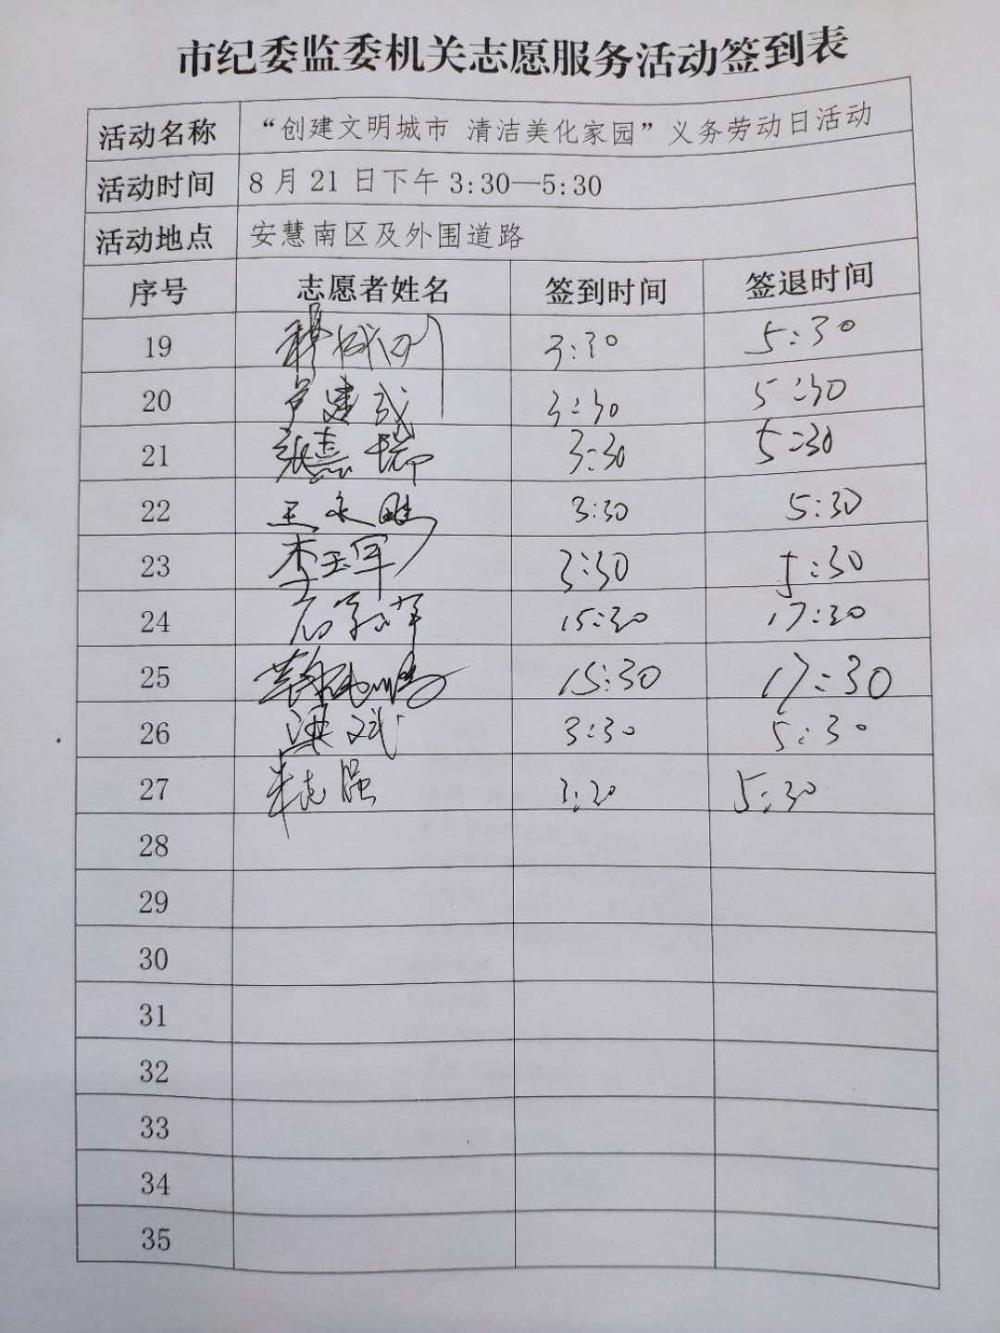 市纪委监委机关志愿服务活动签到表
活动名称 “创建文明城市 清洁美化家园”义务劳动日活动
活动时间 8月21日下午3:30—5:30
活动地点 安慧南区及外围道路
序号 志愿者姓名 签到时间 签退时间
19 3:30 5:30
20 卢建武 3:30 5:30
21 张惠瑞 3:30 5:30
22 王文鹏 3:30 5:30
23 李玉军 3:30 5:30
24 15:30 17:30
25 15:30 17:30
26 洪斌 3:30 5:30
27 朱志强 3:30 5:30
28
29
30
31
32
33
34
35